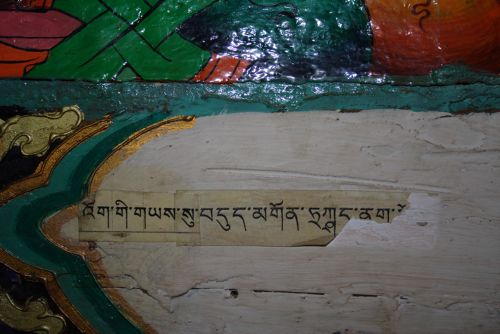 འོག་གི་གཡས་སུ་བདུད་མགོན་ཏྲཀྵད་ནག་